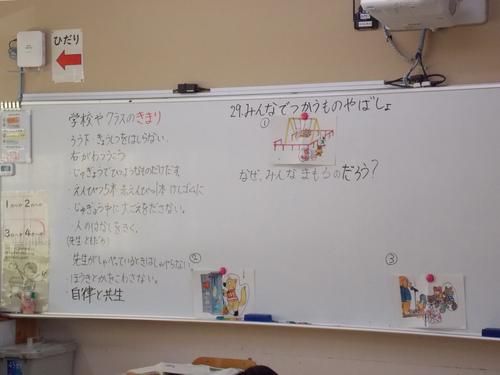 ひだり
学校やクラスのきまり
ろうか きょうしつをはしらない。
右がわつうこう
・じゅぎょうでひつようなものだけだす。
・えんぴつ5本 赤えんぴつ1本 けしゴム1こ
・じゅぎょう中に大ごえをださない。
・人のはなしをきく。
(先生 ともだち)
先生がしゃべっているときはしゃべらない
ほうきとかをこわさない。
・自律と共生
29.みんなでつかうものやばしょ
①
なぜ、みんなきまもるのだろう?
②
③